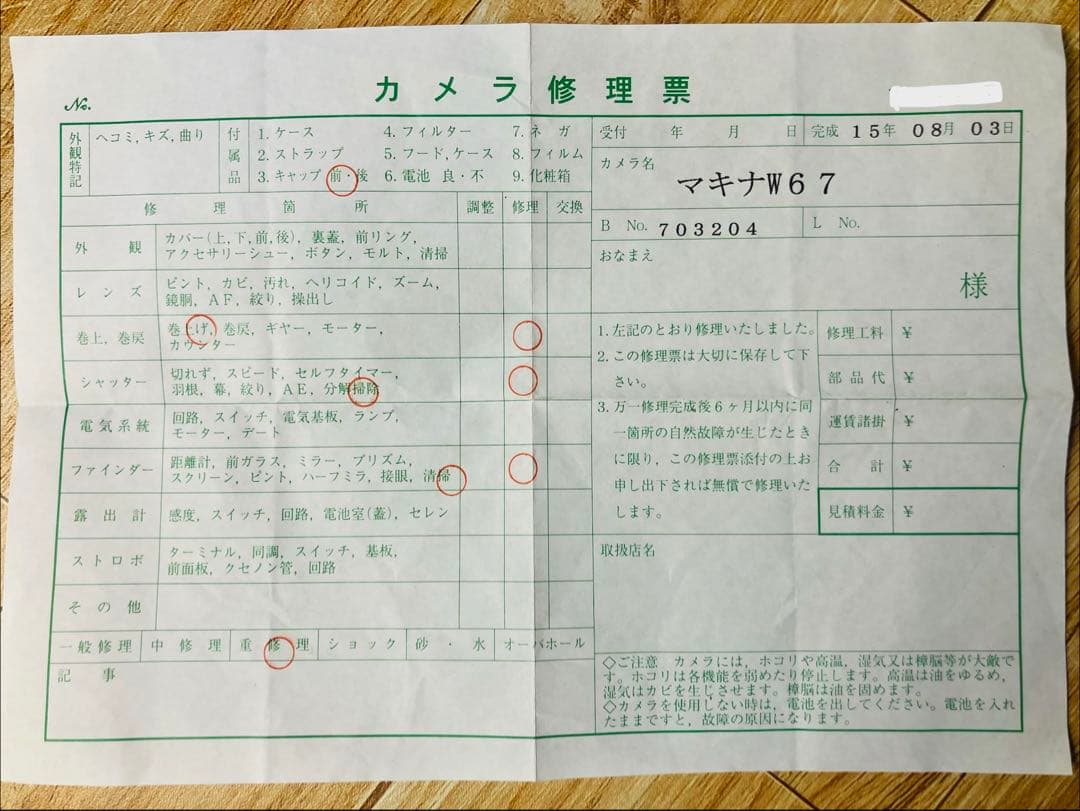 カメラ修理票
No.
外観特記
ヘコミ, キズ, 曲り
付属品
1. ケース 4. フィルター 7. ネガ
2. ストラップ 5. フード, ケース 8. フィルム
3. キャップ 前・後 6. 電池 良・不 9. 化粧箱
修理箇所 調整 修理 交換
外観
カバー(上, 下, 前, 後), 裏蓋, 前リング,
アクセサリーシュー, ボタン, モルト, 清掃
レンズ
ピント, カビ, 汚れ, ヘリコイド, ズーム,
鏡胴, AF, 絞り, 操出し
巻上, 巻戻
巻上げ, 巻戻, ギヤー, モーター,
カウンター
シャッター
切れず, スピード, セルフタイマー,
羽根, 幕, 絞り, AE, 分解掃除
電気系統
回路, スイッチ, 電気基板, ランプ,
モーター, デート
ファインダー
距離計, 前ガラス, ミラー, プリズム,
スクリーン, ピント, ハーフミラ, 接眼, 清掃
露出計
感度, スイッチ, 回路, 電池室(蓋), セレン
ストロボ
ターミナル, 同調, スイッチ, 基板,
前面板, クセノン管, 回路
その他
一般修理 中修理 重修理 ショック 砂・水 オーバホール
記事
受付 年 月 日 完成 15年 08月 03日
カメラ名
マキナW67
B No. 703204 L No.
おなまえ
様
1. 左記のとおり修理いたしました。
2. この修理票は大切に保存して下
さい。
3. 万一修理完成後6ヶ月以内に同
一箇所の自然故障が生じたとき
に限り, この修理票添付の上お
申し出下されば無償で修理いた
します。
修理工料 ¥
部品代 ¥
運賃諸掛 ¥
合計 ¥
見積料金 ¥
取扱店名
◇ご注意 カメラには, ホコリや高温, 湿気又は樟脳等が大敵で
す。ホコリは各機能を弱めたり停止します。高温は油をゆるめ,
湿気はカビを生じさせます。樟脳は油を固めます。
◇カメラを使用しない時は, 電池を出してください。電池を入れ
たままですと, 故障の原因になります。